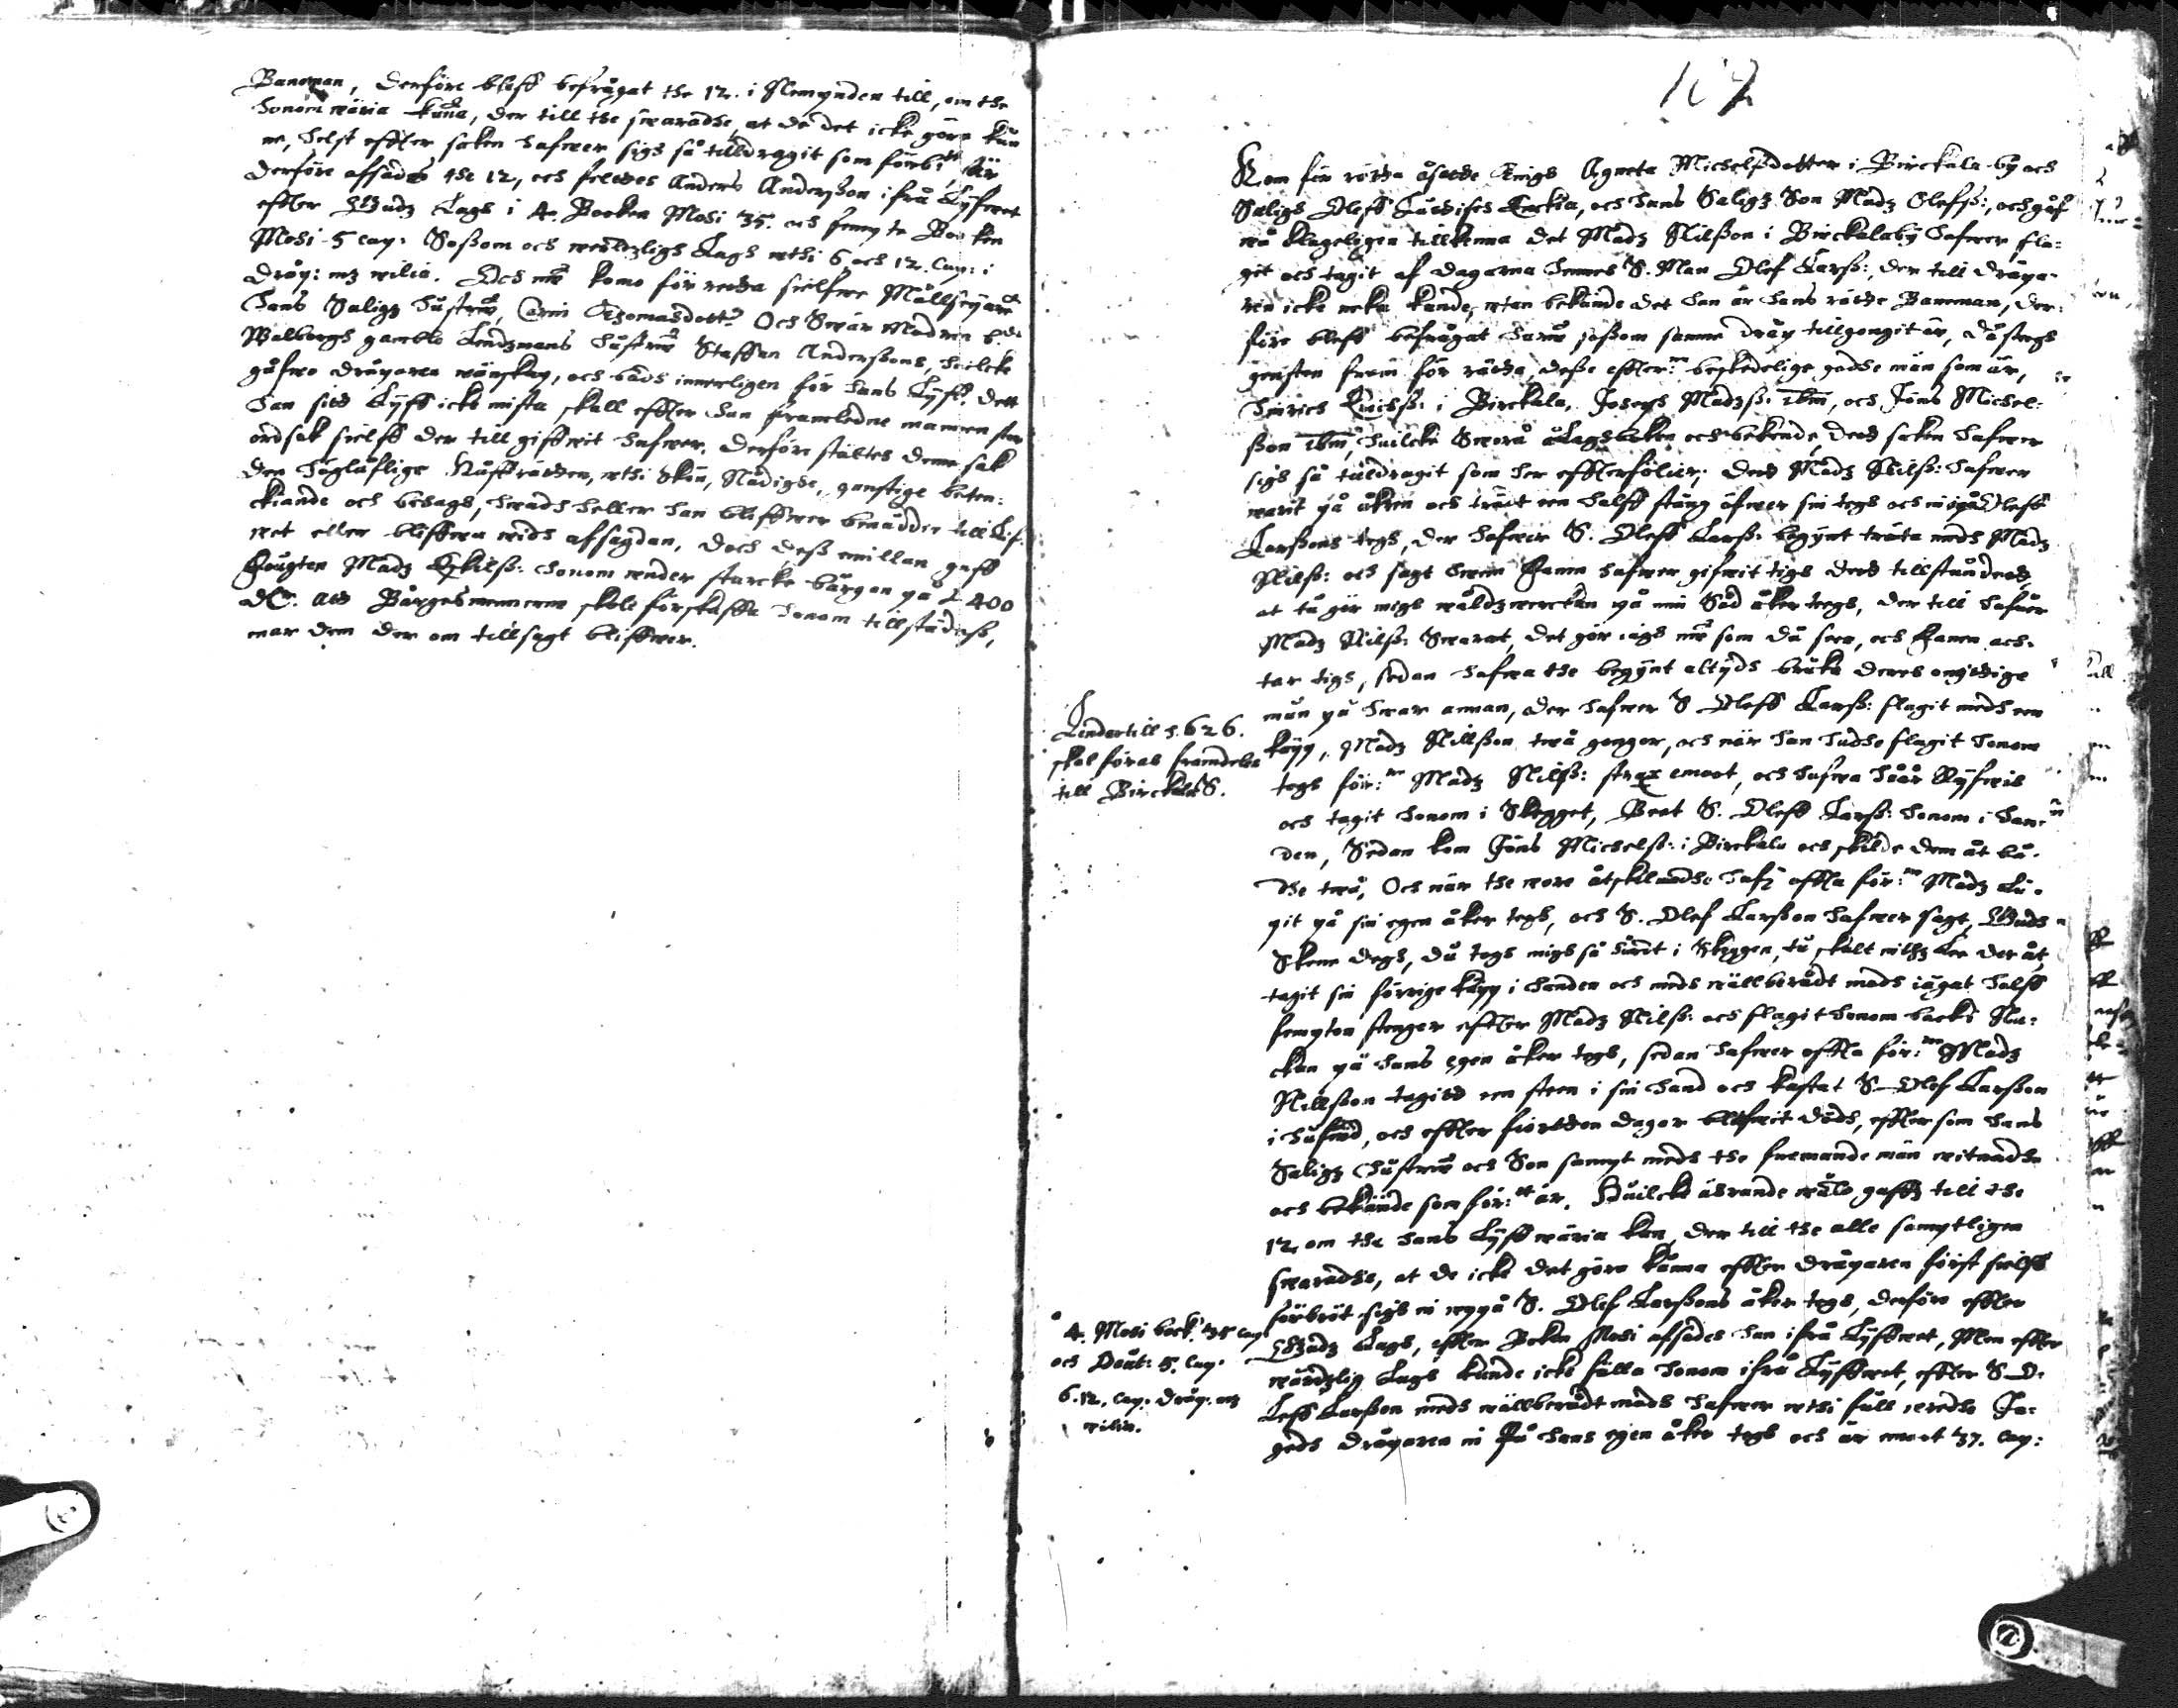 Baneman, derföre bleff befrågat the 12. i Nempnden till, om the
honom wäria kuna, der till the swaradhe, at de det icke göra kun
ne, helst effter saken hafwer sigh så tilldragit som förbe:tt är
derföre affsades the 12, och felthes Anders Andersson ifrå Lyfwet
effter Gudz Lagh i 4. Booken Mosi 35. och fempte Boo ken
Mosi 5 cap: Sossom och werldzligh Lagh uthi 6 och 12. Cap: i
dråp: mz wilia. Och nu komo för retta sielfwe Målsegare
hans Saligz hustru, Carin Thomasdott:r Och Swär Modren b:de
Walborgh gamble Lendzmans hustru Staffan Anderssons, huilcke
gåfwo dråparen wänskap, och badh innerligen för hans Lyff, dett
han sitt Lyff icke mista skall effter han framledne mannen stor
ordsak sielff der till giffwit hafwer. derföre stältes denne sak
den höglåflige Näffsträtten, uthi skön, Nådighe, gunstige beten:
ckiande och behagh, hwadh heller han bliffwer benådder till Lif:
wet eller bliffwa widh afsagdan, doch dess emillan gaff
Fougten Madz Eskilss: honom under starcke bårgan på L 400
dr. att Borgesmennerne skole förskaffa honom tillstädess,
nar dem der om tillsagt bliffwer.
107
Kom för rätta åsatte Tings Agneta Michelssdotter i Birckala by och
Saligh Oleff Larssons Enckia, och hans Saligz Son Madz Olefss:, och gåf
wå klageligen tillkenna det Madz Nilsson i Birckalaby hafwer sla:
git och tagit af dagarna hennes S. Man Olef Larss:, der till dråpa:
ren icke neka kunde, utan bekände det han är hans rätte Baneman, der:
före bleff befrågat huru sossom samme dråp tillgongit är, då stegh
genisten fram för rätta, desse effter:ne beskedelige godhe män som är,
Hinrich Erichss: i Birckala, Joseph Madzss: ibm, och Jöns Michel:
sson ibm, huilcke Sworå å Laghboken och bekende, dett saken hafwer
sigh så tilldragit som her effterfölier; dett Madz Nilss: hafwer
warit på åkren och trädt een halff stång öfwer sin tegh och in opå Oleff
Larssons tegh, der hafwer S. Oleff Larss: begynt träta medh Madz
Nilss: och sagt hwem Fanen hafwer gifwit tigh dett tillstånd,
at tu gör migh wåldzwerckan på min Såd åker tegh, der till hafwer
Madz Nilss: Swarat, det gör iagh nu som du seer, och Fanen ach:
tar tigh, sedan hafwa the begynt altydh bruka deras onyttige
mun på hwar annan, der hafwer S Oleff Larss: slagit medh een
käpp, Madz Nillsson twå gonger, och när han hadhe slagit honom
togh för:ne Madz Nilss: strax emoot, och hafwa håår Ryfwis
och tagit honom i Skegget, Beet S. Oleff Larss: honom i han
den, Sedan kom Jöns Michelss: i Birckala och skilde dem åt bå:
dhe twå, Och när the wore åtskilandhe hafr offta för:ne Madz Lu:
git på sin egen åker tegh, och S. Olef Larsson hafwer sagt, Gudh
Skene degh, du togh migh så hårdt i Skeggen, tu skalt nithz lee der åt,
tagit sin förrige käpp i handen och medh wällberådt modh iågat halff
fempton stenger effter Madz Nilss: och slagit honom backi Na:
ckan på hans egen åker tegh, sedan hafwer offta för:ne Madz
Nillsson tagitt een sten i sin hand och kastat S. Olef Larsson
i hufwud, och effter fiorthon dagar blifwit dödh, effter som hans
Saligz hustru och Son sampt medh the frememande män witnadhe
och bekände som för:tt är. Huilcke ärande wåld gaffz till the
12. om the hans Lyff wäria kan, der till the alle samptligen
swaradhe, at de icke det göra kunna effter dråparen först sielff
förbröt sigh in uppå S. Olef Larssons åker tegh, derföre effter
Gudz Lagh, effter Boken Mosi affsades han ifrå Lyffwet, Men effter
wärdzlig Lagh kunde icke fälla honom ifrå Lyffwet, effter S. O:
Leff Larsson medh wällberådt modh hafwer uthi full wredhe Ja:
gedh dråparen in På hans egen åker tegh och är emoot 37. cap:
Lendertill 5. 626.
skal föras framdeles
till Birckala S.
4. Mosi bock: 35 cap
och Deut: 5. Cap.
6. 12. cap. dråp. mz
wilia.